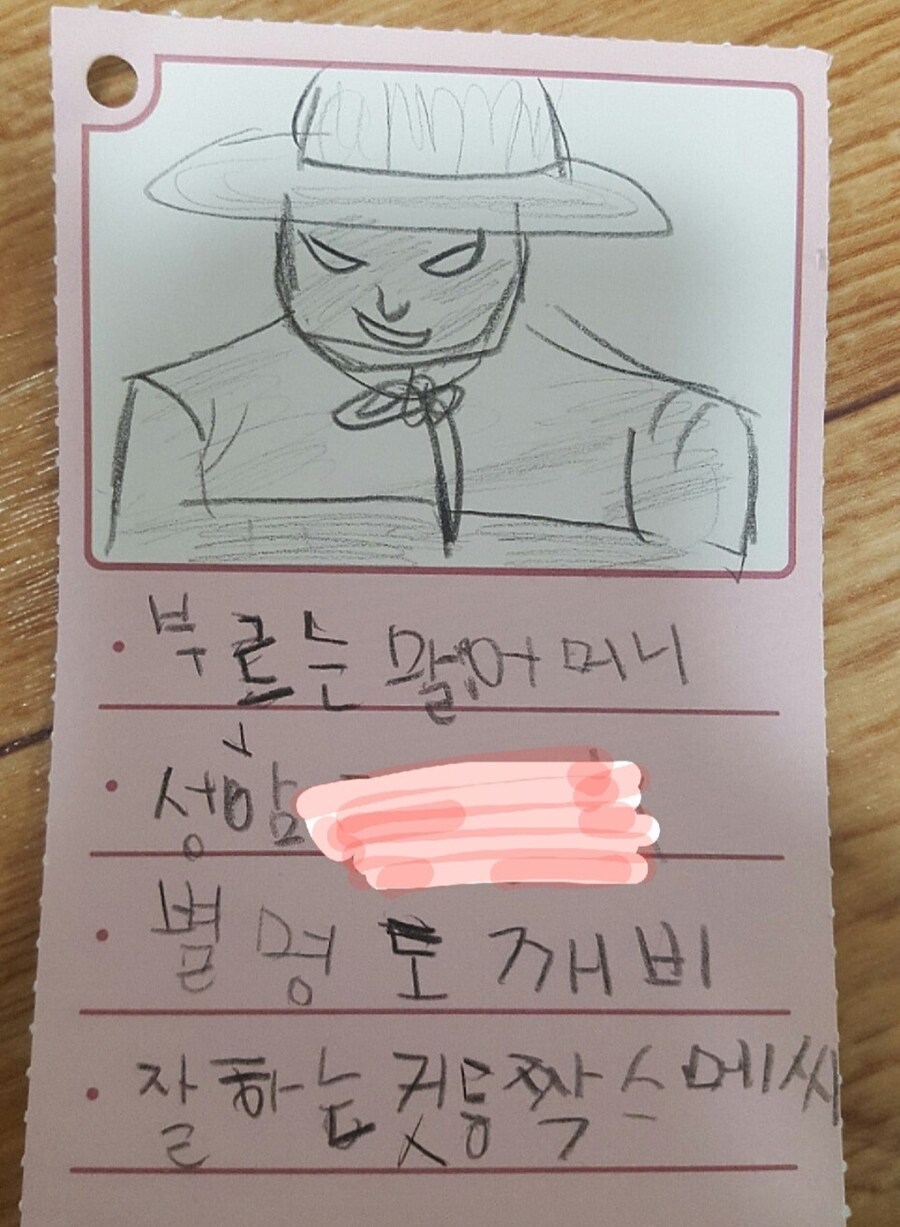 부르는 말어머니
성함
별명 도깨비
잘하는 것등짝스메씨